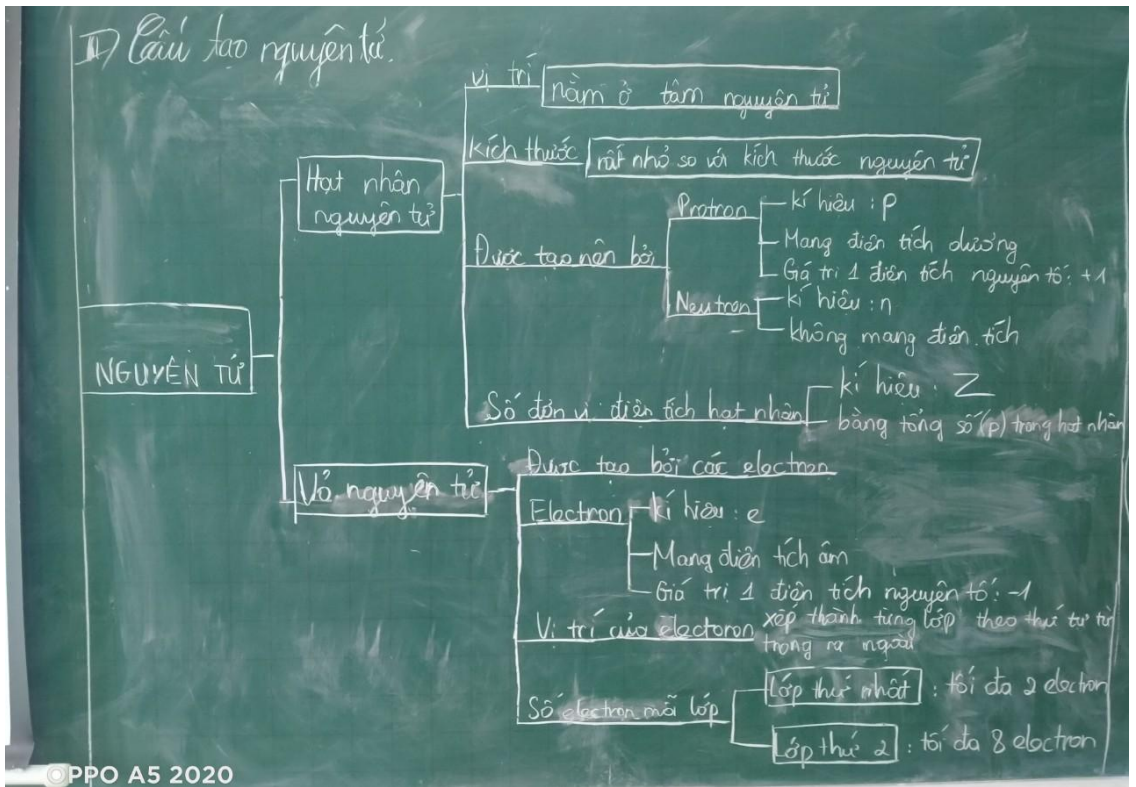 II) Cấu tạo nguyên tử.
NGUYÊN TỬ
Hạt nhân
nguyên tử
vị trí
nằm ở tâm nguyên tử
kích thước
rất nhỏ so với kích thước nguyên tử
Được tạo nên bởi
Protron
kí hiệu : p
Mang điện tích dương
Giá trị 1 điện tích nguyên tố: +1
Neutron
kí hiệu : n
không mang điện tích
Số đơn vị điện tích hạt nhân
kí hiệu : Z
bằng tổng số (p) trong hạt nhân
Vỏ nguyên tử
Được tạo bởi các electron
Electron
kí hiệu : e
Mang điện tích âm
Giá trị 1 điện tích nguyên tố: -1
Vị trí của electoron
xếp thành từng lớp theo thứ tự từ
trong ra ngoài
Số electron mỗi lớp
Lớp thứ nhất : tối đa 2 electron
Lớp thứ 2 : tối đa 8 electron
OPPO A5 2020